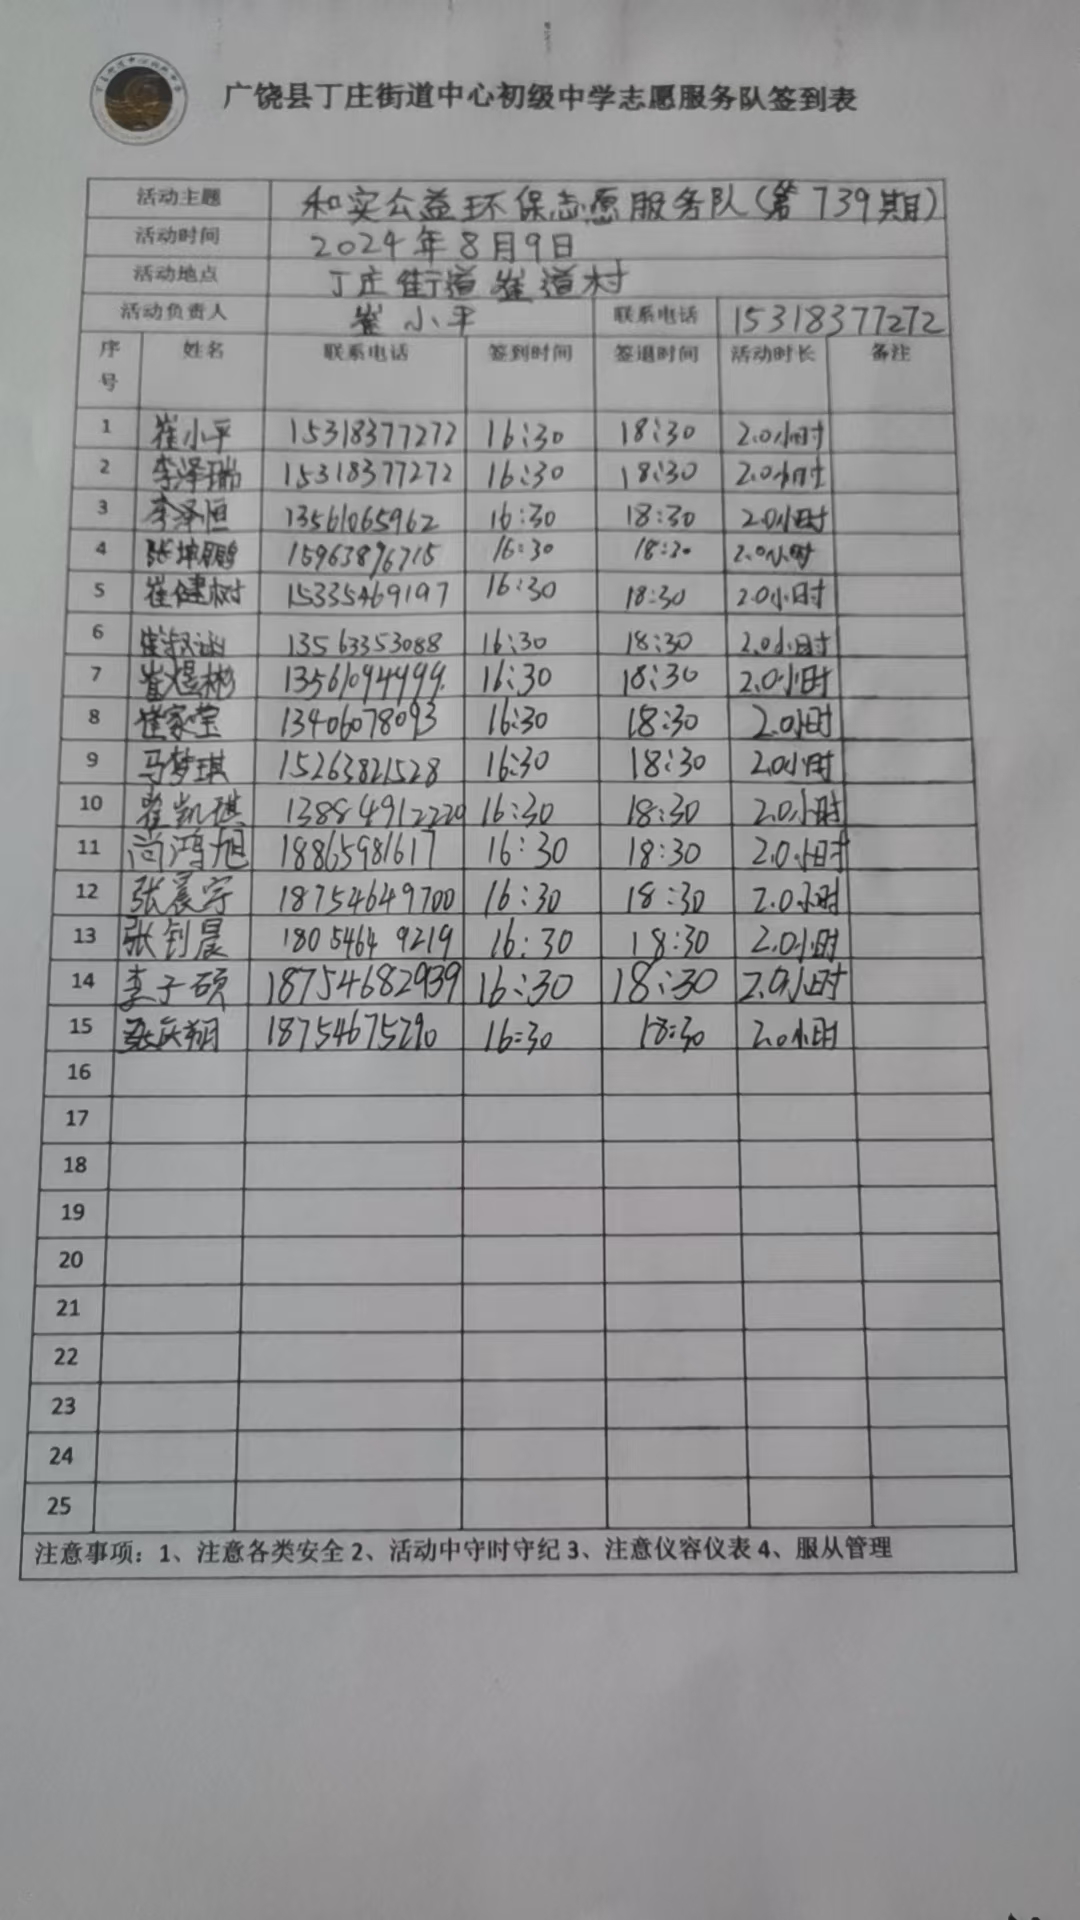 广饶县丁庄街道中心初级中学志愿服务队签到表
活动主题 和实公益环保志愿服务队(第739期)
活动时间 2024年8月9日
活动地点 丁庄街道崔道村
活动负责人 崔小平 联系电话 15318377272
序号 姓名 联系电话 签到时间 签退时间 活动时长 备注
1 崔小平 15318377272 16:30 18:30 2.0小时
2 李泽瑞 15318377272 16:30 18:30 2.0小时
3 李泽恒 13561065962 16:30 18:30 2.0小时
4 张坤鹏 15963896715 16:30 18:30 2.0小时
5 崔健树 15335469197 16:30 18:30 2.0小时
6 13563353088 16:30 18:30 2.0小时
7 崔煜彬 13561094499 16:30 18:30 2.0小时
8 崔家莹 13406078093 16:30 18:30 2.0小时
9 马梦琪 15263821528 16:30 18:30 2.0小时
10 崔凯琪 13884912220 16:30 18:30 2.0小时
11 尚鸿旭 18865981617 16:30 18:30 2.0小时
12 张宸宇 18754649700 16:30 18:30 2.0小时
13 张钊晨 18054649219 16:30 18:30 2.0小时
14 李子硕 18754682939 16:30 18:30 2.0小时
15 张庆翔 18754675290 16:30 18:30 2.0小时
16
17
18
19
20
21
22
23
24
25
注意事项：1、注意各类安全 2、活动中守时守纪 3、注意仪容仪表 4、服从管理